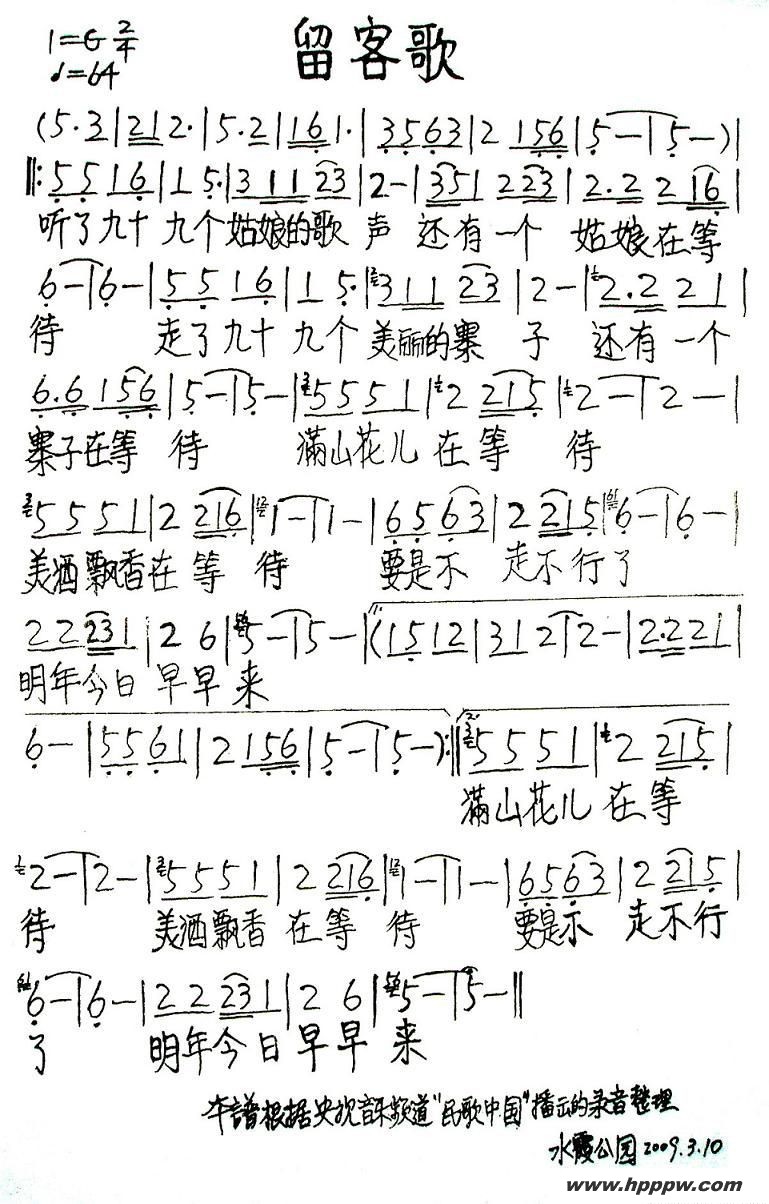 留客歌
1=G 2/4
♩=64
(5·3|21 2·|5·2|16 1·|3563|2 156|5-|5-)|
‖:5516|1 5·|3 11 23|2-|351 223|2·2 216|
听了九十 九个 姑娘的歌 声 还有一个 姑娘在等
6-|6-|5516|1 5·|311 23|2-|2·2 21|
待 走了九十 九个 美丽的寨 子 还有一个
6·6 156|5-|5-|5551|2 215|2-|2-|
寨子在等 待 满山花儿 在等 待
5551|2 216|1-|1-|6563|2 215|6-|6-|
美酒飘香在等 待 要是不 走不行了
22231|2 6|5-|5-|(1512|312|2-|2·2 21|
明年今日 早早 来
6-|5561|2 156|5-|5-):‖5551|2 215|
满山花儿 在等
2-|2-|5551|2 216|1-|1-|6563|2 215|
待 美酒飘香 在等 待 要是不 走不行
6-|6-|22231|2 6|5-|5-‖
了 明年今日 早早 来
本谱根据央视音乐频道"民歌中国"播出的录音整理
水霞公园2009.3.10
www.hpppw.com